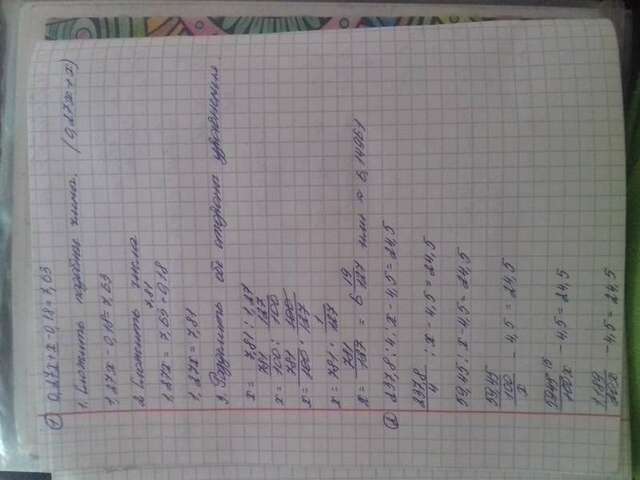 ① 0,27x+x-0,18=7,63
1. Сложить подобные члены. (0,27x+x)
1,27x-0,18=7,63
2. Сложить числа
7,81
1,27x = 7,63+0,18
1,27x=7,81
3. Разделить обе стороны уравнения.
x = 7,81 : 1,27
x = 781/100 : 127/100
x = 781/100 · 100/127
x = 781 · 1/127
x = 781/127 = 6 19/127 или ≈ 6,14961
② 237,8 : 4 : x - 4,5 = 24,5
237,8/4 : x - 4,5 = 24,5
59,45 : x - 4,5 = 24,5
59,45/100/x - 4,5 = 24,5
5945/100x - 4,5 = 24,5
1189/20x - 4,5 = 24,5